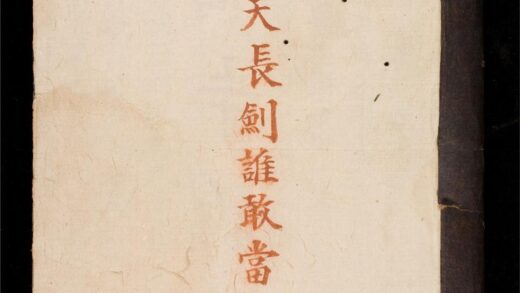 天長劍誰敢當